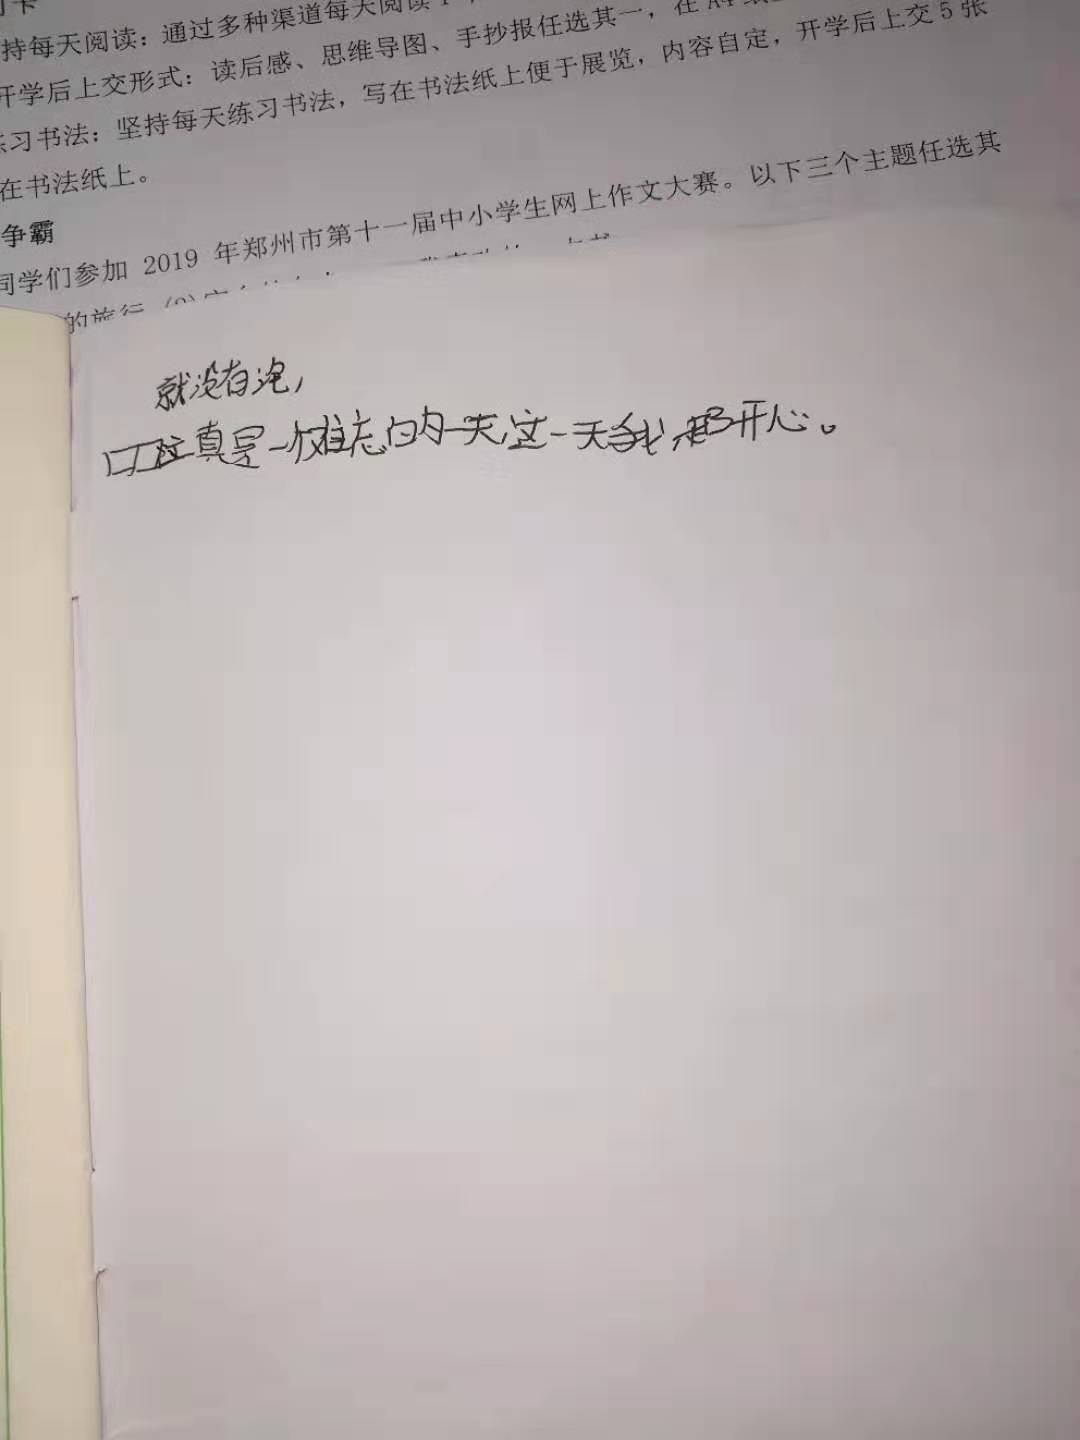 持每天阅读：通过多种渠道每天阅读1
开学后上交形式：读后感、思维导图、手抄报任选其一，在A4
练习书法：坚持每天练习书法，写在书法纸上便于展览，内容自定，开学后上交5张
在书法纸上。
争霸
同学们参加 2019 年郑州市第十一届中小学生网上作文大赛。以下三个主题任选其
的旅行
就没有泡，
真是一难忘的一天，这一天我开心。